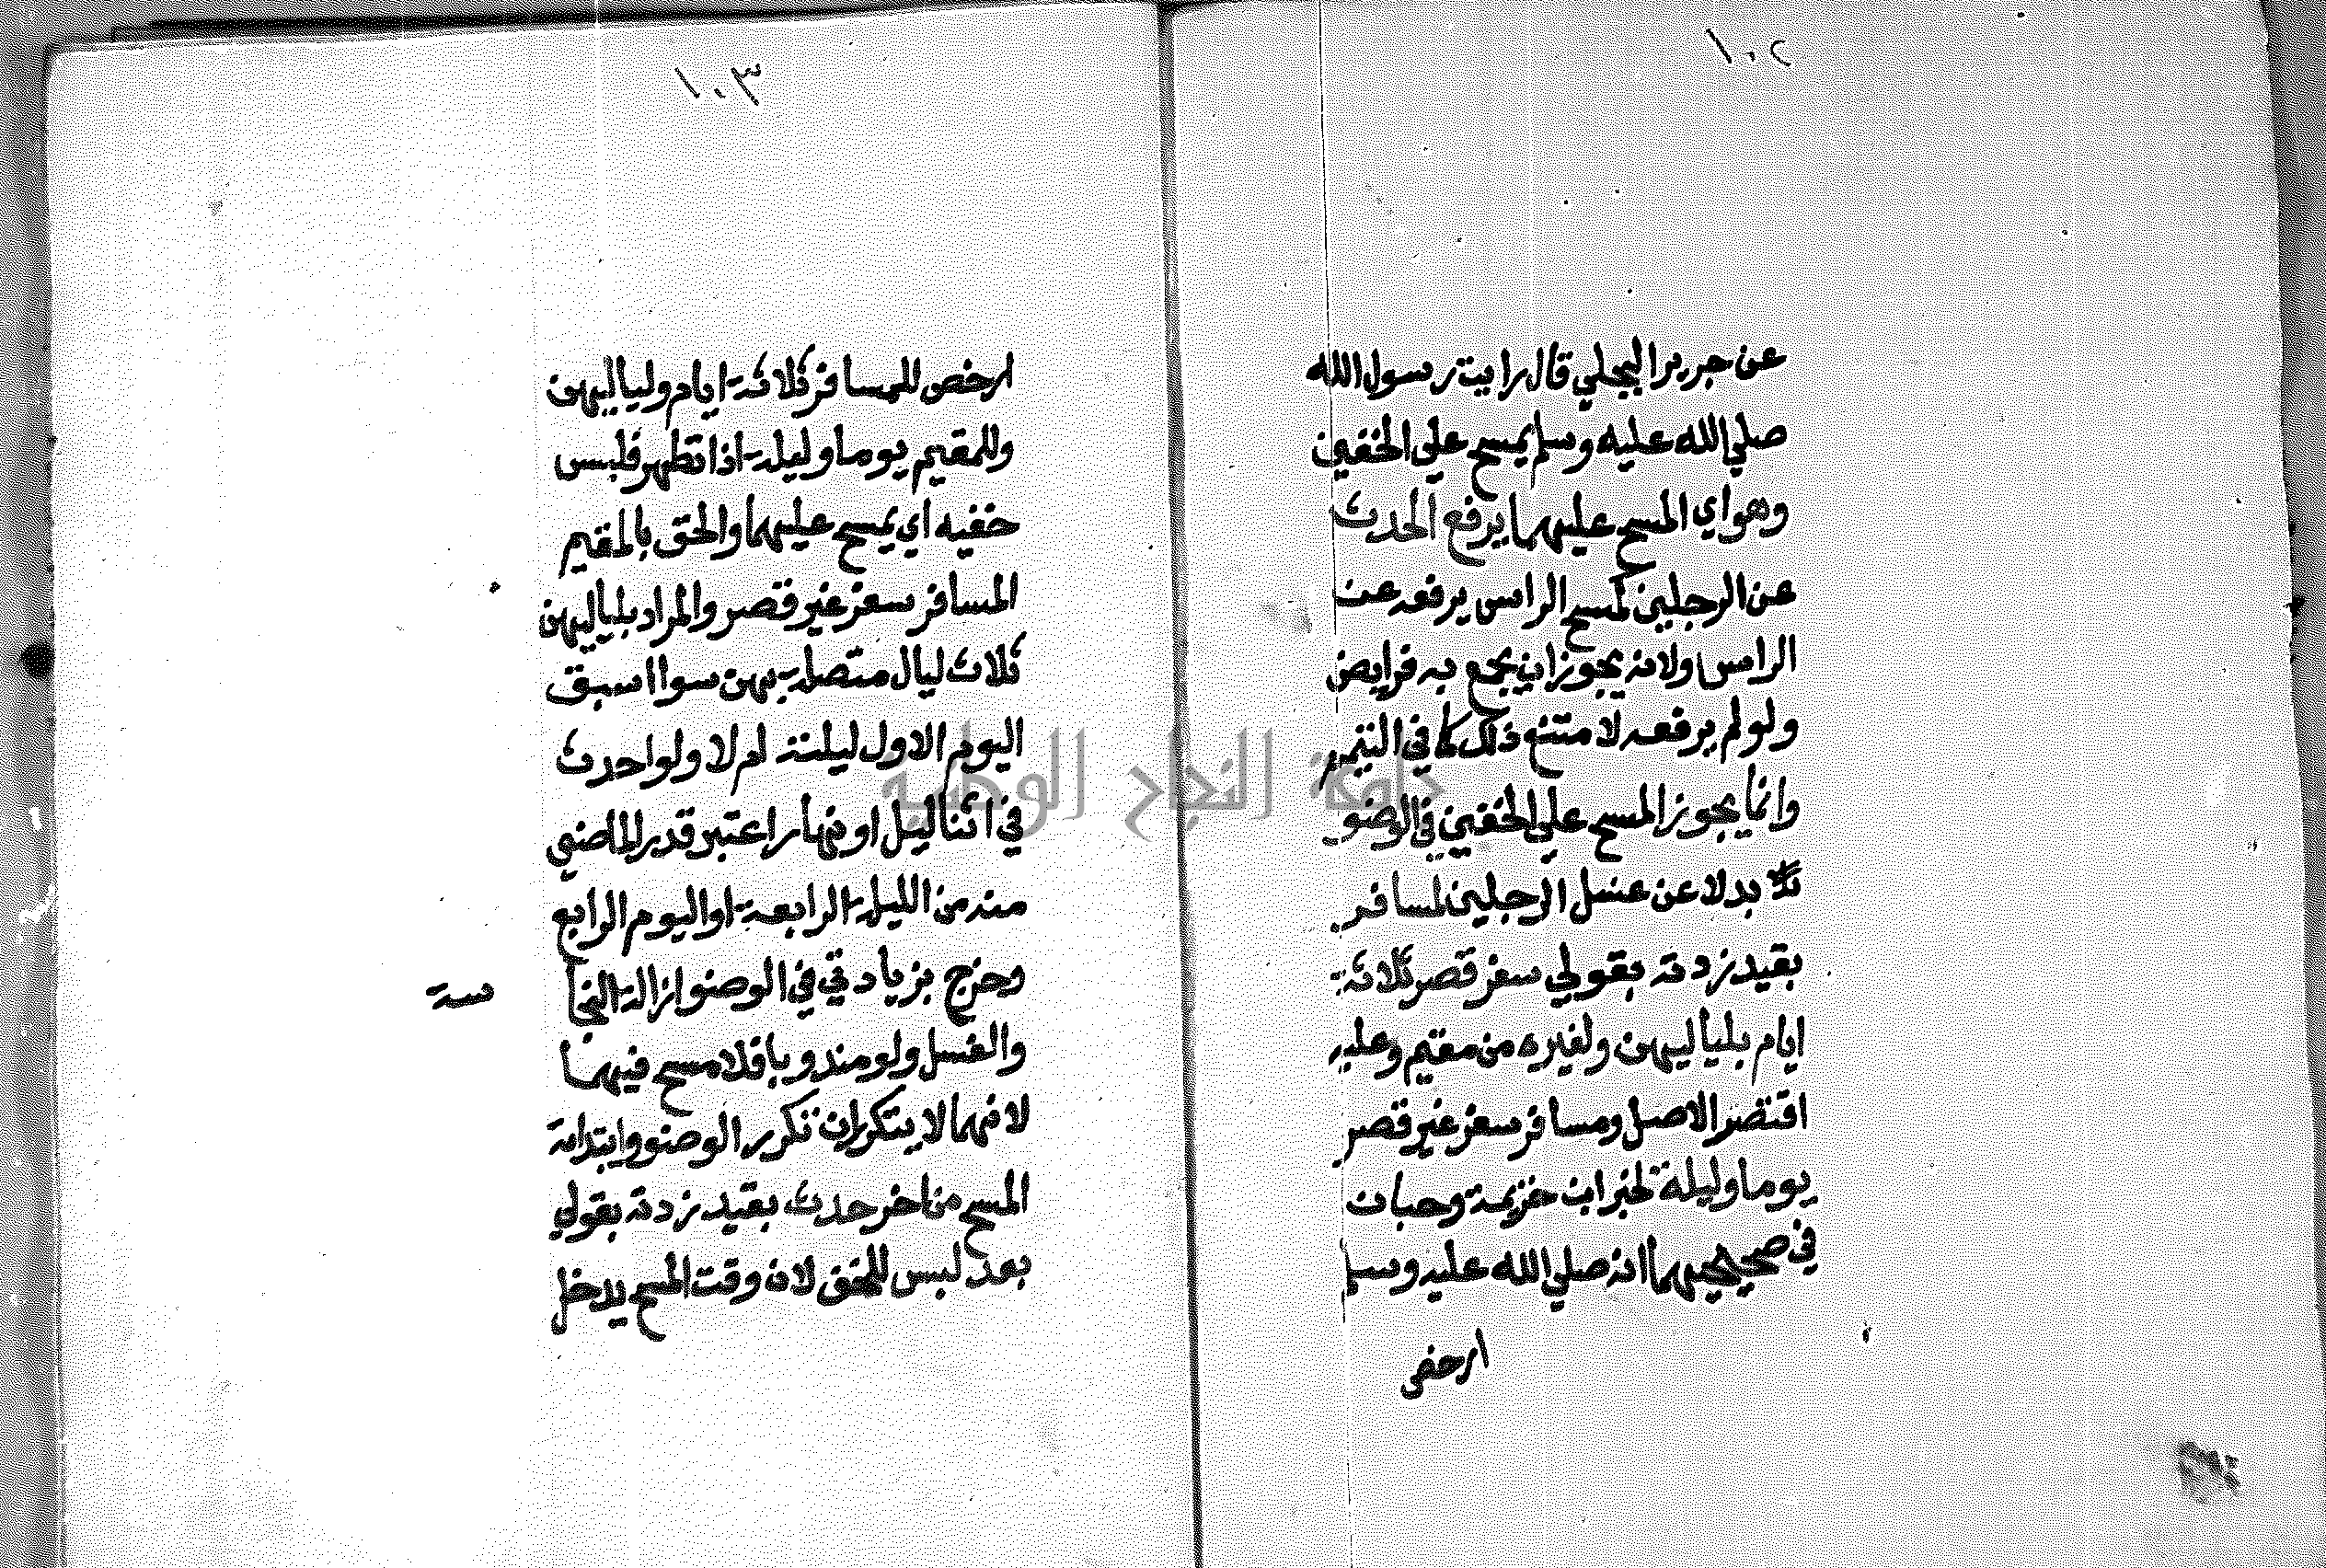 ١٠٢
عن جرير البجلي قال رايت رسول الله
صلي الله عليه وسلم يمسح علي الخفين
وهو اي المسح عليهما يرفع الحدث
عن الرجلين كمسح الراس يرفعه عن
الراس ولانه يجوز ان يجمع به فرايض
ولو لم يرفعه لامتنع ذلك كما في التيمم
وانما يجوز المسح علي الخفين في الوضو
بدلا عن غسل الرجلين لمسافر
بقيد زدته بقولي سفر قصر ثلاثة
ايام بلياليهن ولغيره من مقيم وعليه
اقتصر الاصل ومسافر سفر غير قصر
يوما وليلة لخبر ابن خزيمة وحبان
في صحيحيهما انه صلي الله عليه وسلم
ارخص
١٠٣
ارخص للمسافر ثلاثة ايام ولياليهن
وللمقيم يوما وليلة اذا تطهر فلبس
خفيه اي يمسح عليهما والحق بالمقيم
المسافر سفر غير قصر والمراد بلياليهن
ثلاث ليال متصلة بهن سوا اسبق
اليوم الاول ليلته ام لا ولو احدث
في اثنا ليل او نهار اعتبر قدر الماضي
منه من الليلة الرابعة او اليوم الرابع
وخرج بزيادتي في الوضو ازالة النجا
سة
والغسل ولو مندوبا فلا مسح فيهما
لانهما لا يتكرران تكرر الوضو وابتداته
المسح من اخر حدث بقيد زدته بقولي
بعد لبس للخف لان وقت المسح يدخل
جامعة النجاح الوطنية